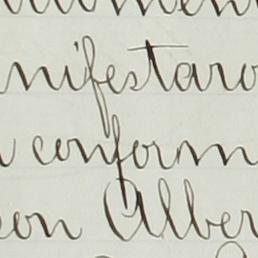 nifestaro
conform
con Alber